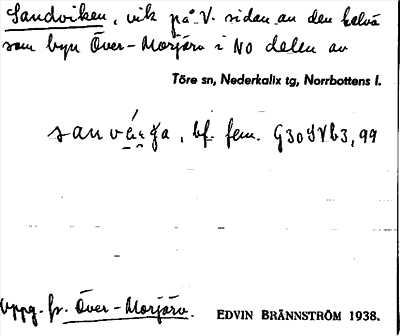 Sandviken, vik på V. sidan av den halvö
som byn Över-Morjärv i NO delen av
Töre sn, Nederkalix tg, Norrbottens l.
bf. fem. G30SVb3,99
Uppg. fr. Över-Morjärv.
EDVIN BRÄNNSTRÖM 1938.